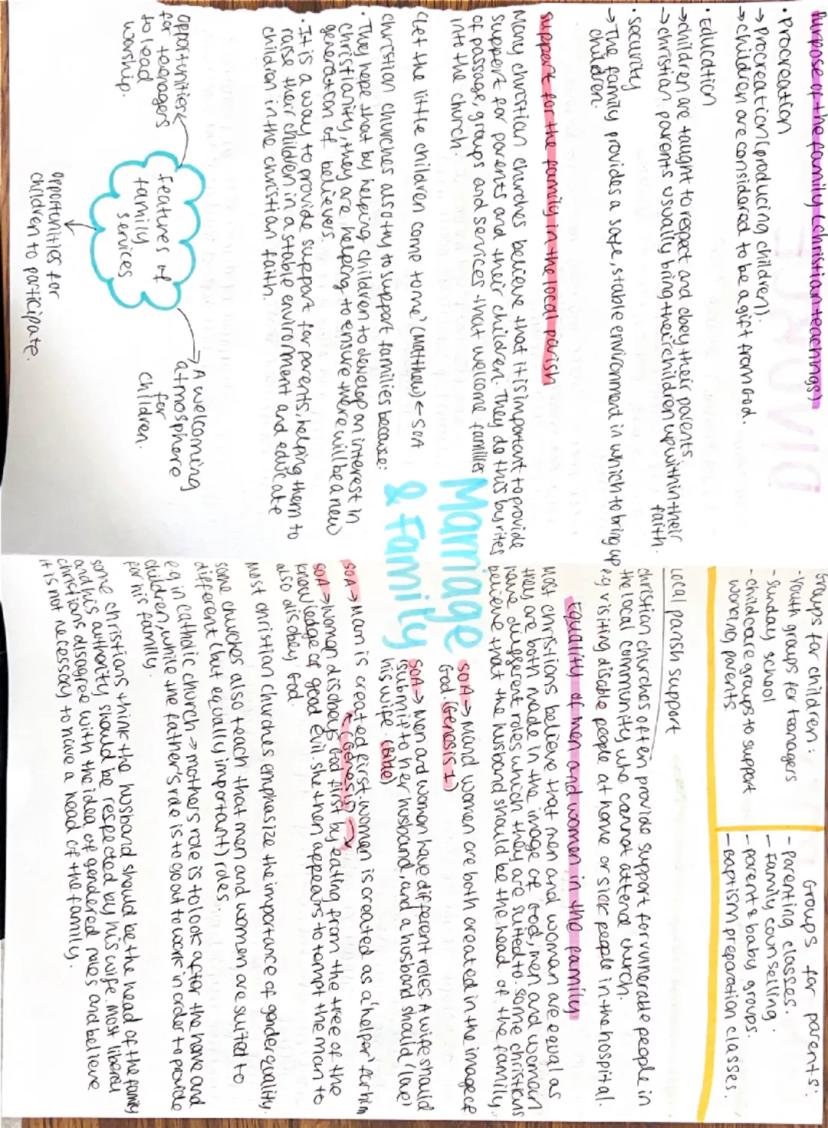 Purpose of the family (christian teachings)
• Procreation
→ Procreation (producing children).
→ children are considered to be a gift from God.
• Education
→ children are taught to respect and obey their parents.
→ christian parents usually bring their children up within their faith.
• security
→ The family provides a safe, stable environment in which to bring up children.
support for the family in the local parish
Many christian churches believe that it is important to provide
support for parents and their children. They do this by rites
of passage, groups and services that welcome families
into the church.
'Let the little children come to me' (Matthew) ← SOA
christian churches also try to support families because:
• They hope that by helping children to develop an interest in
christianity, they are helping to ensure there will be a new
generation of believers.
• It is a way to provide support for parents, helping them to
raise their children in a stable enviroment and educate
children in the christian faith.
features of
family
services
opportunities
for teenagers
to lead
worship.
opportunities for
children to participate.
A welcoming
atmosphere
for
children.
Marriage
& Family
Groups for children:
- Youth groups for teenagers
- Sunday school
- childcare groups to support
working parents
Groups for parents:
- Parenting classes.
- family counselling.
- parent & baby groups.
- Baptism preparation classes.
local parish support
christian churches often provide support for vulnerable people in
the local community who cannot attend church.
e.g visiting disable people at home or sick people in the hospital.
Equality of men and women in the family
Most christians believe that men and women are equal as
they are both made in the image of God, men and women
have different roles which they are suited to. some christians
believe that the husband should be the head of the family.
SOA → Mand women are both created in the image of
God (Genesis 1)
SOA → Men and women have different roles. A wife should
(submit to her husband, and a husband should (love)
his wife. (Bible)
SOA → Man is created first, women is created as a 'helper' for him
(Genesis)
SOA → women disobeys God first by eating from the tree of the
knowledge of good evil. she then appears to tempt the man to
also disobey God.
Most christian churches emphasize the importance of gender quality
some churches also teach that men and women are suited to
different (but equally important) roles.
e.g in catholic church → mothers role is to look after the home and
children, while the father's role is to go out to work in order to provide
for his family.
some christians think the husband should be the head of the family
and his authority should be respected by his wife. Most liberal
christians disagree with the idea of gendered roles and believe
it is not necessary to have a head of the family.